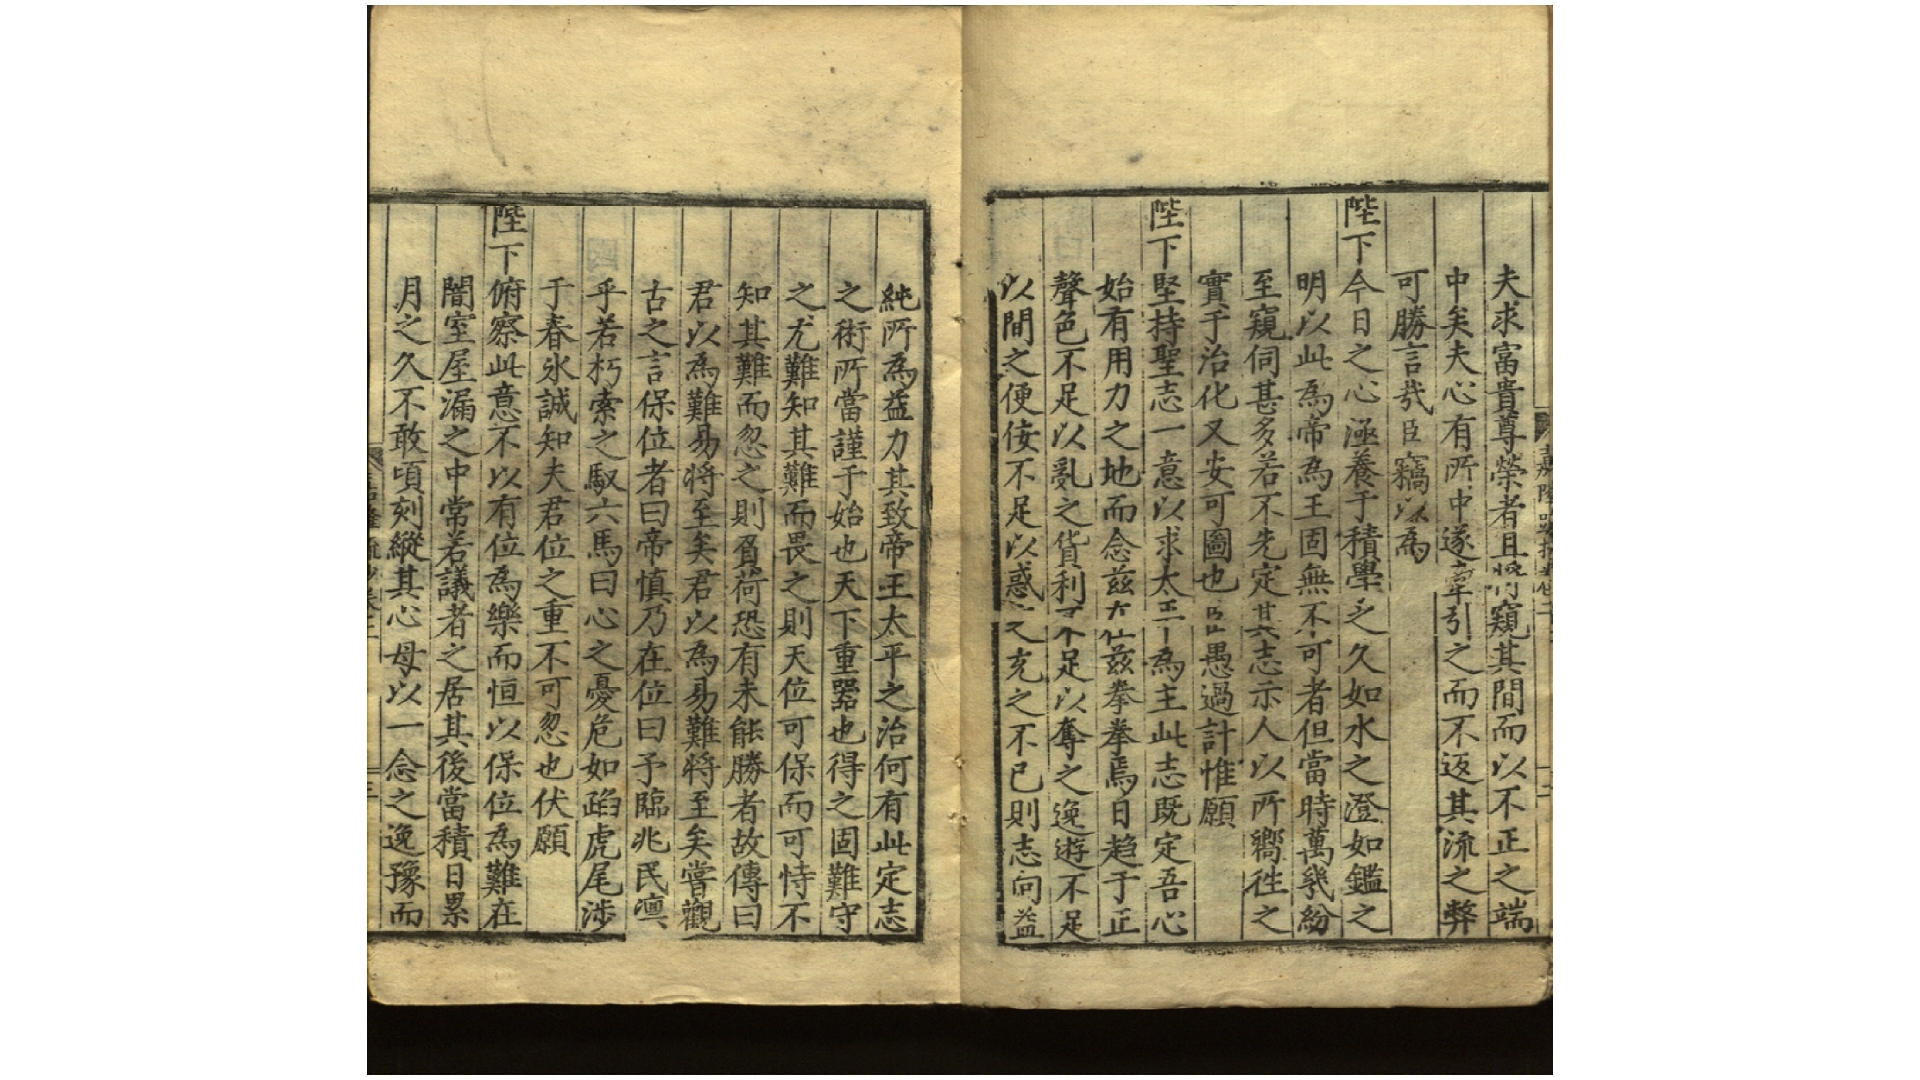 夫求富貴尊榮者且將窺其間而以不正之端
中矣夫心有所中遂牽引之而不返其流之弊
可勝言㢤臣竊以為
陛下今日之心涵養于積學之久如水之澄如鑑之
明以此為帝為王固無不可者但當時萬幾紛
至窺伺甚多若不先定其志示人以所嚮徃之
實于治化又安可圖也臣愚過計惟願
陛下堅持聖志一意以求太平為主此志既定吾心
始有用力之地而念兹在兹拳拳焉日趋于正
聲色不足以亂之貨利不足以奪之逸遊不足
以間之便佞不足以惑之充之不已則志向益
純所為益力其致帝王太平之治何有此定志
之術所當謹于始也天下重器也得之固難守
之尤難知其難而畏之則天位可保而可恃不
知其難而忽之則負荷恐有未能勝者故傳曰
君以為難易將至矣君以為易難將至矣嘗觀
古之言保位者曰帝慎乃在位曰予臨兆民凛
乎若朽索之馭六馬曰心之憂危如蹈虎尾涉
于春氷誠知夫君位之重不可忽也伏願
陛下俯察此意不以有位為樂而恒以保位為難在
闇室屋漏之中常若議者之居其後當積日累
月之久不敢頃刻縱其心毋以一念之逸豫而